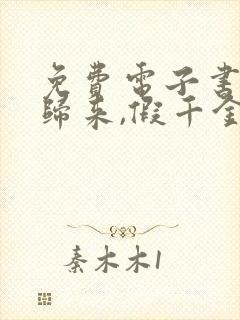 免費電子書
歸來,假千金
秦木木1